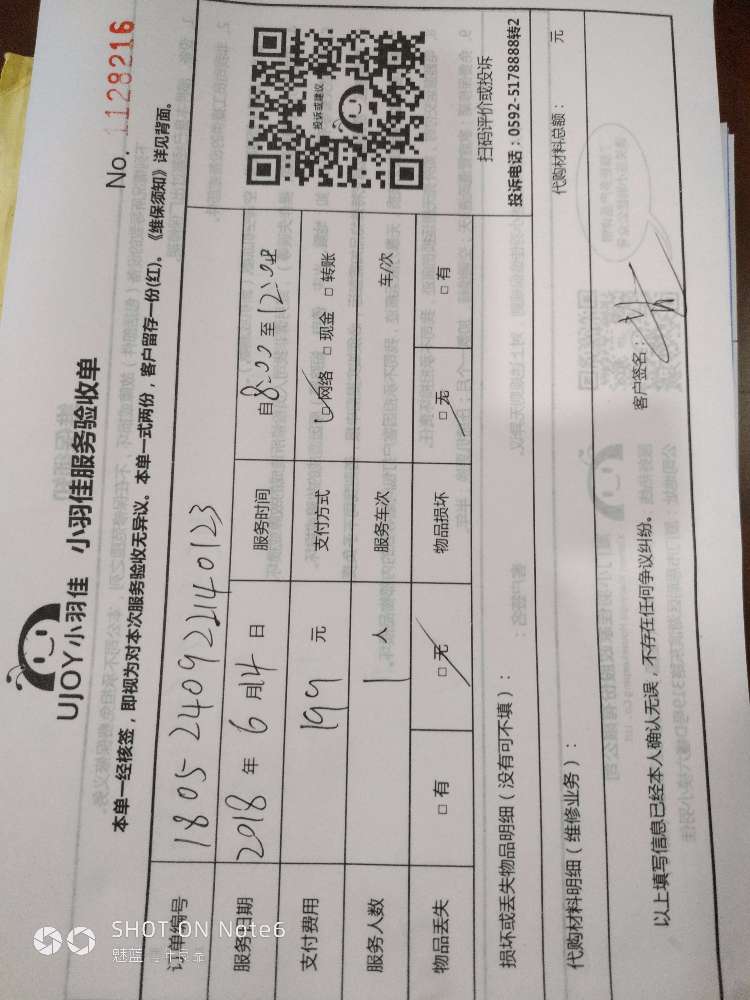 UJOY小羽佳 小羽佳服务验收单
No. 1128216
本单一经核签，即视为对本次服务验收无异议。本单一式两份，客户留存一份(红)。《维保须知》详见背面。
订单编号 1805240922140123
服务日期 2018 年 6 月 14 日 服务时间 自 8:00 至 12:08
支付费用 199 元 支付方式 □ 网络 □ 现金 □ 转账
服务人数 1 人 服务车次 车/次
物品丢失 □ 有 □ 无 物品损坏 □ 无 □ 有
投诉或建议
扫码评价或投诉
投诉电话：0592-5178888转2
损坏或丢失物品明细（没有可不填）：
代购材料明细（维修业务）： 代购材料总额： 元
以上填写信息已经本人确认无误，不存在任何争议纠纷。 客户签名：
SHOT ON Note6
魅蓝